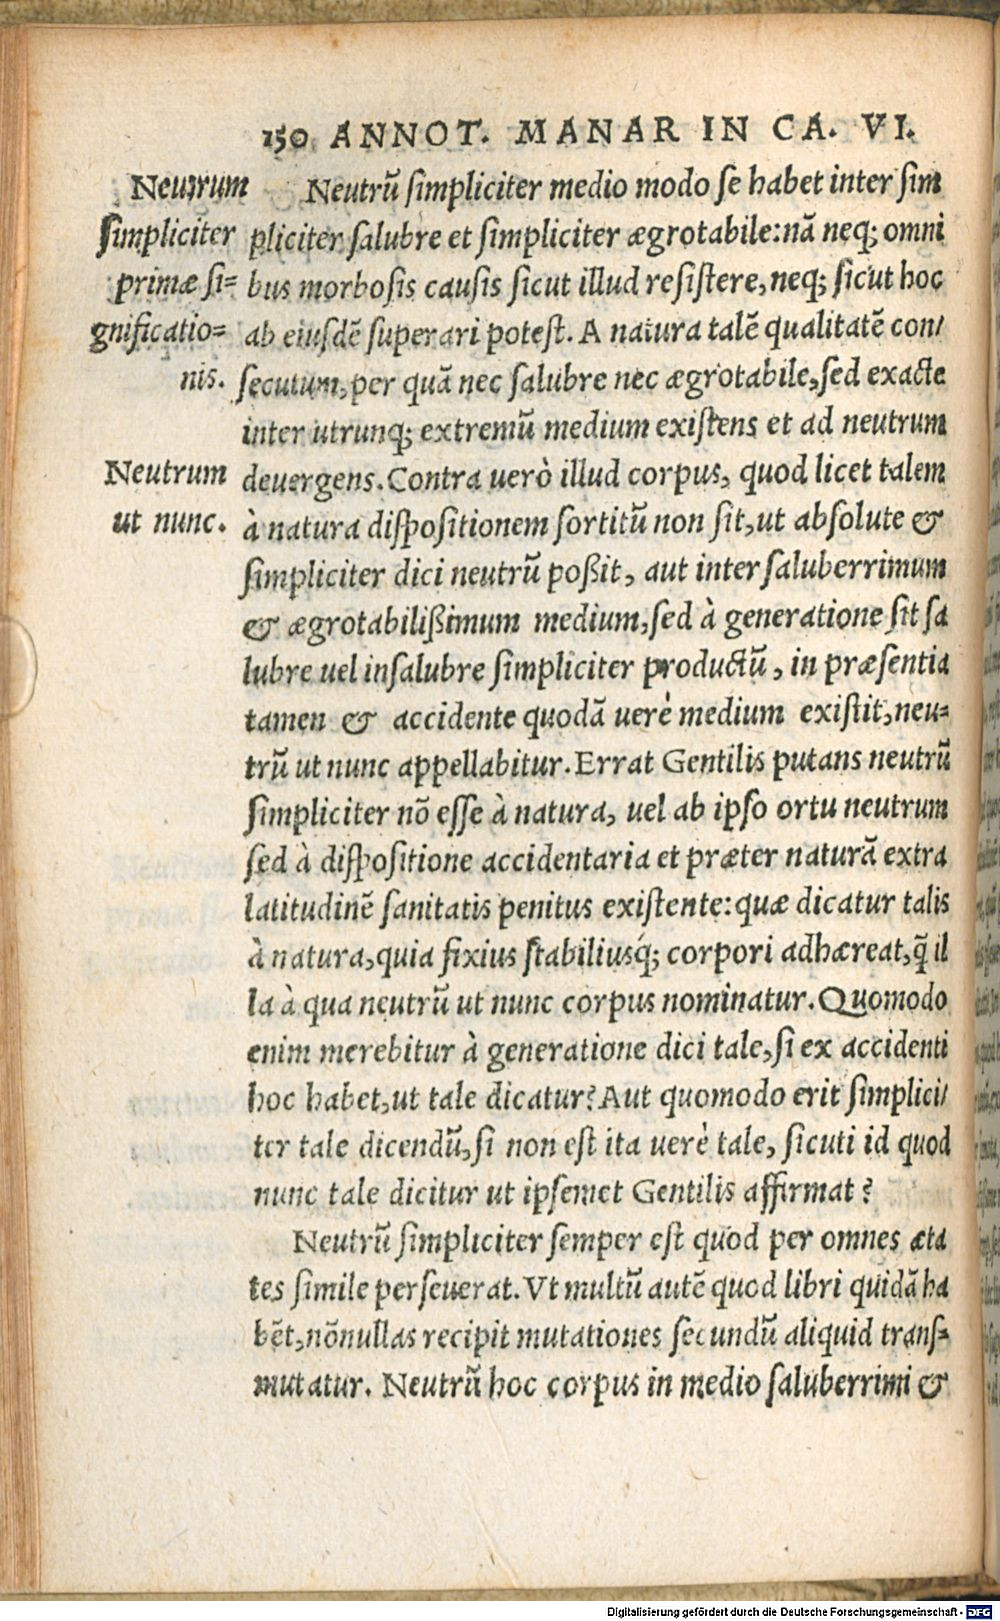 150 ANNOT. MANAR IN CA. VI.
Neutrum
simpliciter
primæ si-
gnificatio-
nis.
Neutrū simpliciter medio modo se habet inter sim
pliciter salubre et simpliciter ægrotabile: nā neq; omni
bus morbosis causis sicut illud resistere, neq; sicut hoc
ab eiusdē superari potest. A natura talē qualitatē con/
secutum, per quā nec salubre nec ægrotabile, sed exacte
inter utrunq; extremū medium existens et ad neutrum
Neutrum
ut nunc.
deuergens. Contra uerò illud corpus, quod licet talem
à natura dispositionem sortitū non sit, ut absolute &
simpliciter dici neutrū poßit, aut inter saluberrimum
& ægrotabilißimum medium, sed à generatione sit sa
lubre uel insalubre simpliciter productū, in præsentia
tamen & accidente quodā uerè medium existit, neu-
trū ut nunc appellabitur. Errat Gentilis putans neutrū
simpliciter nō esse à natura, uel ab ipso ortu neutrum
sed à dispositione accidentaria et præter naturā extra
latitudinē sanitatis penitus existente: quæ dicatur talis
à natura, quia fixius stabiliusq́; corpori adhæreat, q̄ il
la à qua neutrū ut nunc corpus nominatur. Quomodo
enim merebitur à generatione dici tale, si ex accidenti
hoc habet, ut tale dicatur? Aut quomodo erit simplici/
ter tale dicendū, si non est ita uerè tale, sicuti id quod
nunc tale dicitur ut ipsemet Gentilis affirmat?
Neutrū simpliciter semper est quod per omnes æta
tes simile perseuerat. Vt multū autē quod libri quidā ha
bēt, nōnullas recipit mutationes secundū aliquid trans-
mutatur. Neutrū hoc corpus in medio saluberrimi &
Digitalisierung gefördert durch die Deutsche Forschungsgemeinschaft - DFG